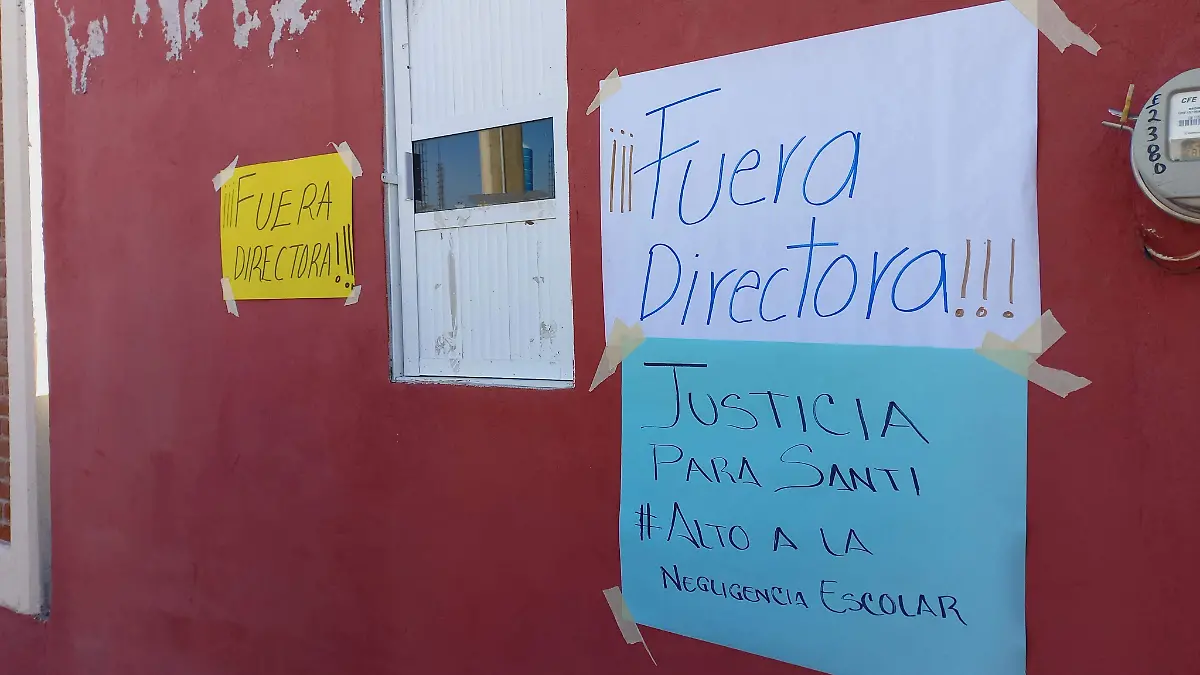 ¡¡¡FUERA
DIRECTORA!!!
¡¡¡Fuera
Directora!!!
JUSTICIA
PARA SANTI
#ALTO A LA
NEGLIGENCIA ESCOLAR
CFE
E2380